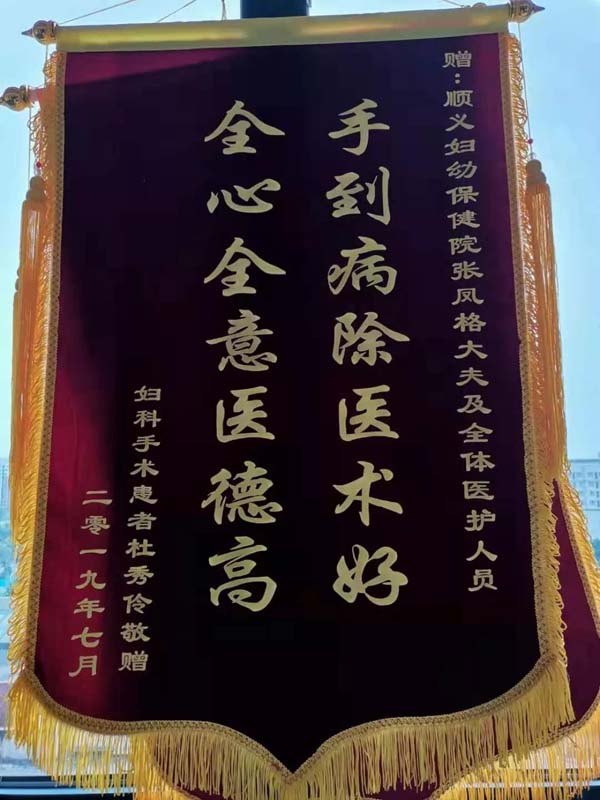 赠：顺义妇幼保健院张凤格大夫及全体医护人员
手到病除医术好
全心全意医德高
妇科手术患者杜秀伶敬赠
二零一九年七月